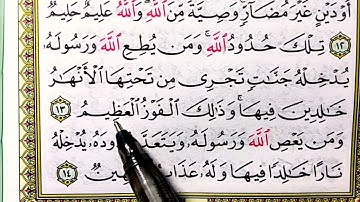 أَوْ دَيْنٍ غَيْرَ مُضَآرٍّ وَصِيَّةً مِّنَ ٱللَّهِ وَٱللَّهُ عَلِيمٌ حَلِيمٌ
١٢ تِلْكَ حُدُودُ ٱللَّهِ وَمَن يُطِعِ ٱللَّهَ وَرَسُولَهُۥ
يُدْخِلْهُ جَنَّٰتٍ تَجْرِى مِن تَحْتِهَا ٱلْأَنْهَٰرُ
خَٰلِدِينَ فِيهَا وَذَٰلِكَ ٱلْفَوْزُ ٱلْعَظِيمُ ١٣
وَمَن يَعْصِ ٱللَّهَ وَرَسُولَهُۥ وَيَتَعَدَّ يُدْخِلْهُ
نَارًا خَٰلِدًا فِيهَا وَلَهُۥ عَذَابٌ ١٤